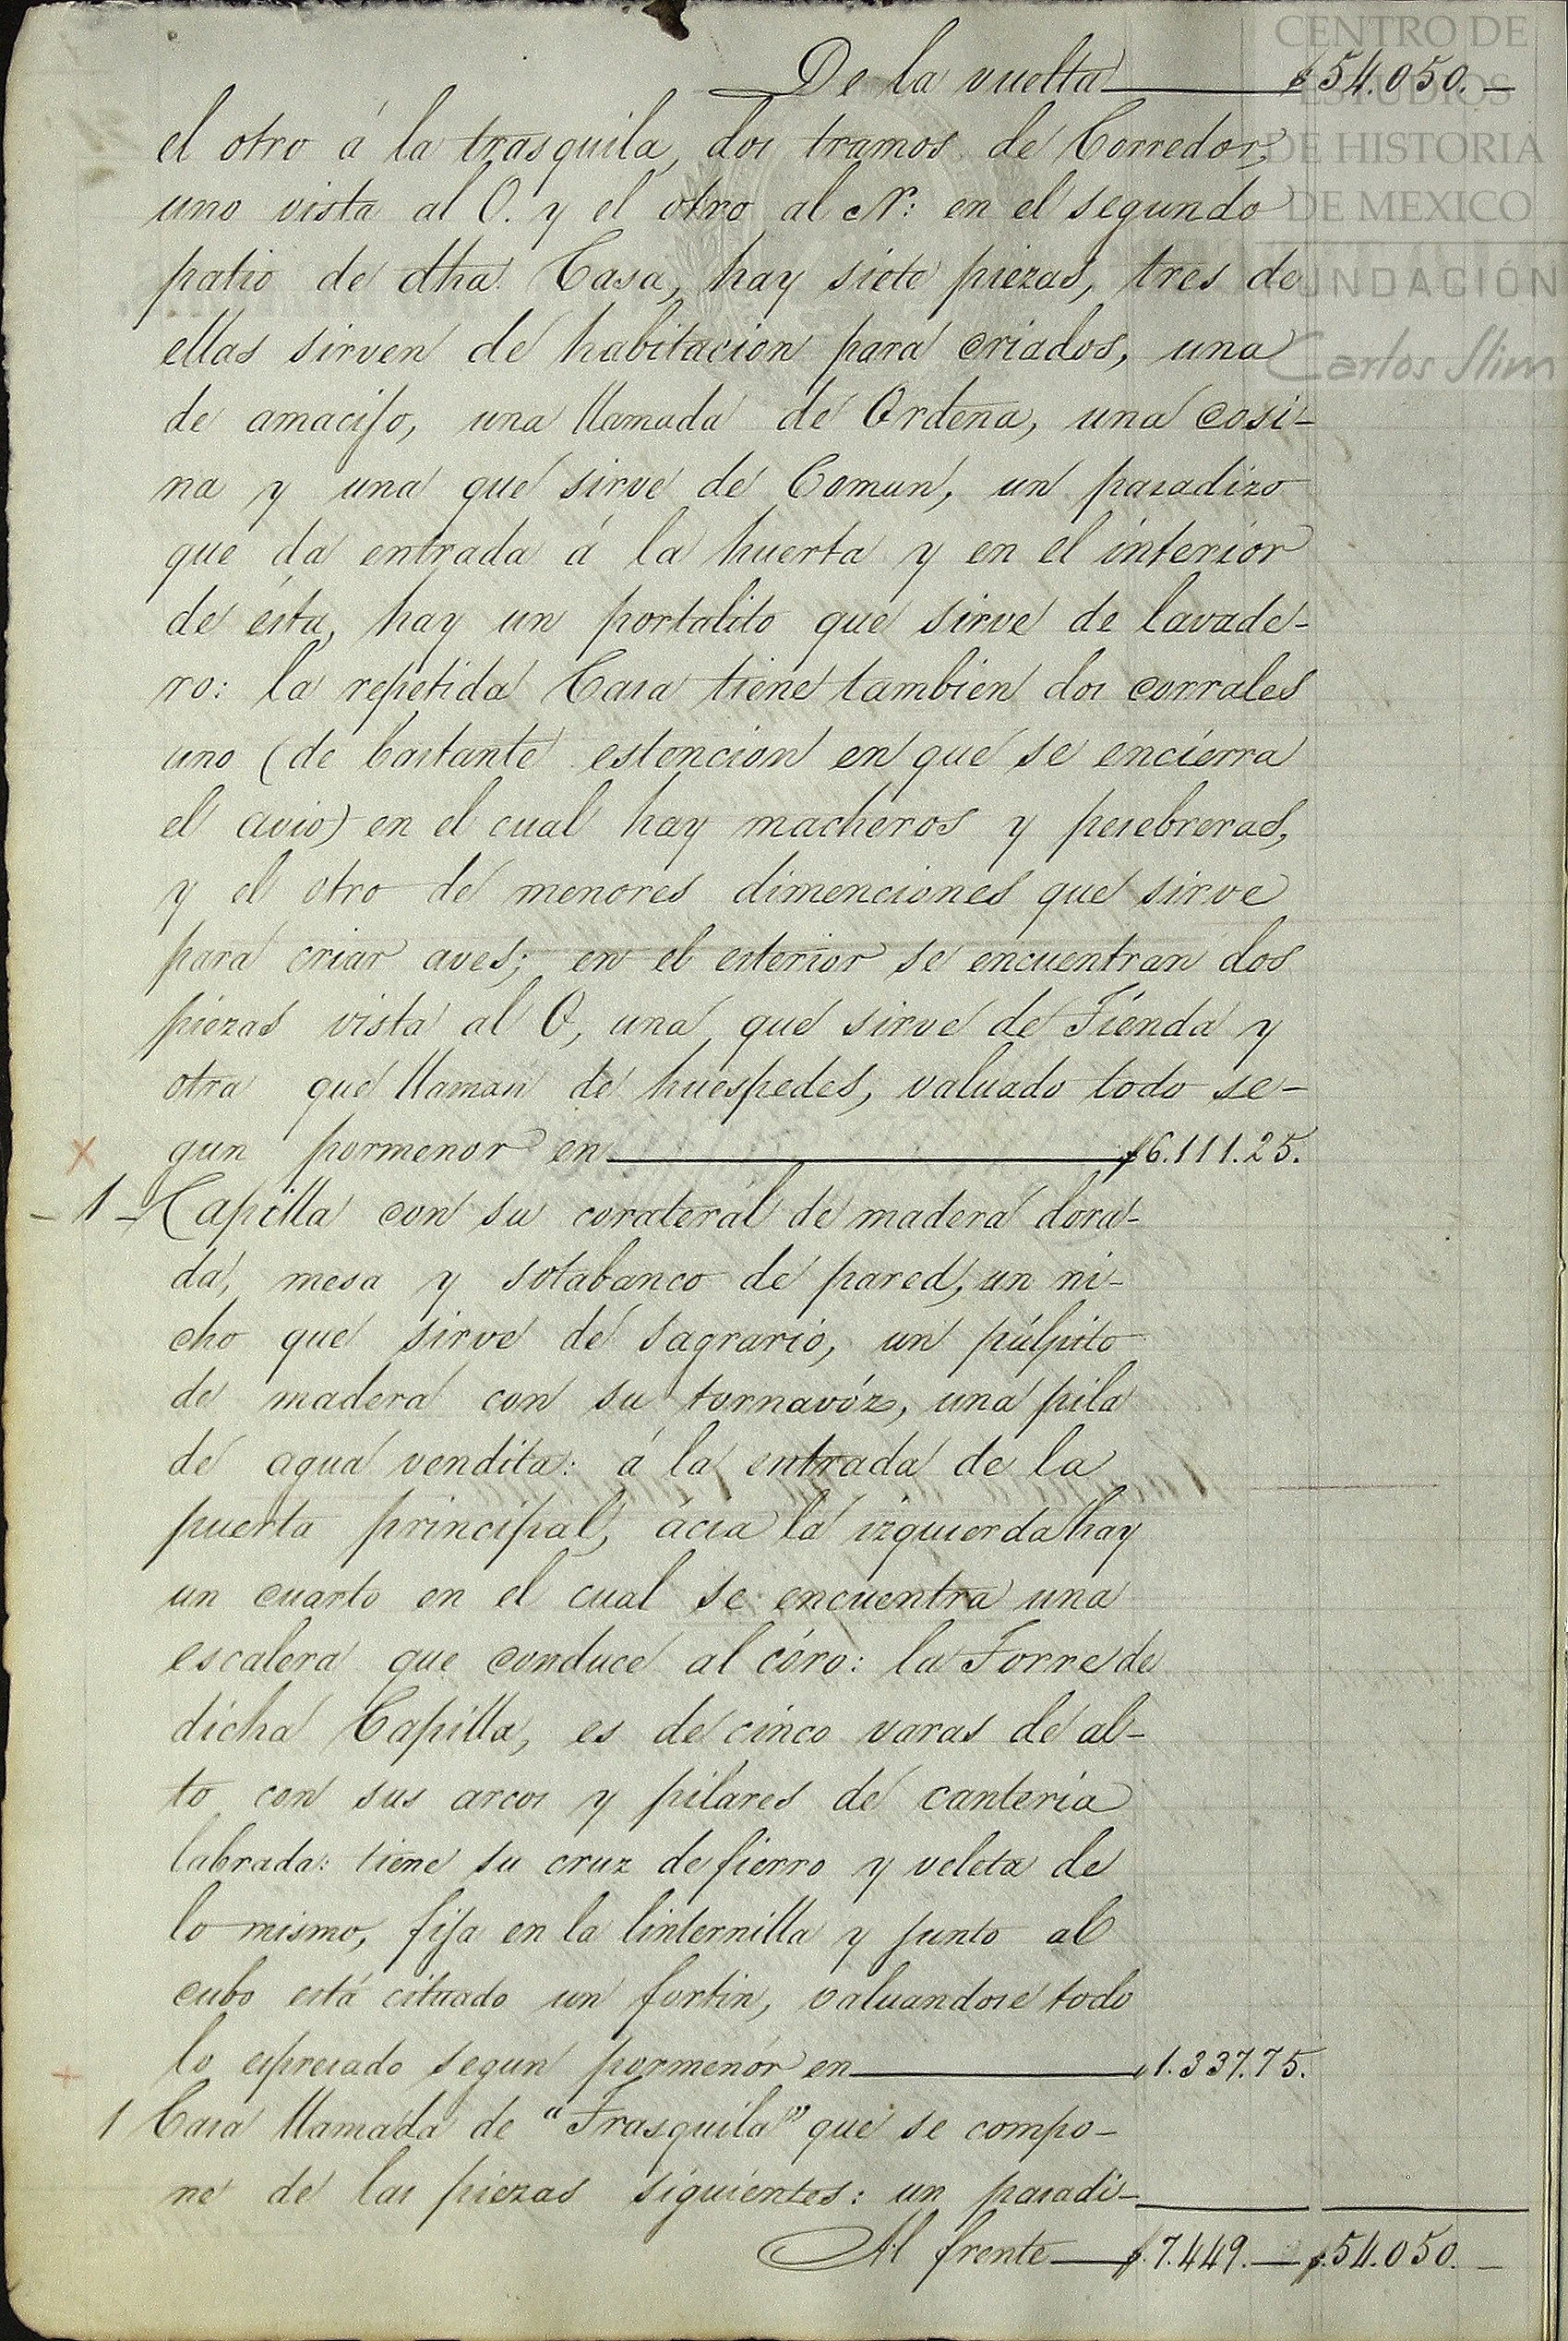 CENTRO DE
ESTUDIOS
DE HISTORIA
DE MEXICO
FUNDACIÓN
Carlos Slim
De la vuelta $54.050.—
el otro á la trasquila, dos tramos de Corredor,
uno vista al O. y el otro al N: en el segundo
patio de dha. Casa, hay siete piezas, tres de
ellas sirven de habitacion para criados, una
de amacijo, una llamada de Ordeña, una cosi-
na y una que sirve de Comun, un pasadizo
que da entrada á la huerta y en el interior
de ésta, hay un portalito que sirve de lavade-
ro: la repetida Casa tiene tambien dos corrales
uno (de bastante estencion en que se encierra
el avio) en el cual hay macheros y pesebreras,
y el otro de menores dimenciones que sirve
para criar aves; en el esterior se encuentran dos
piezas vista al O, una que sirve de Tienda y
otra que llaman de huespedes, valuado todo se-
gun pormenor en $6.111.25.
- 1 - Capilla con su corateral de madera dora-
da, mesa y sotabanco de pared, un ni-
cho que sirve de Sagrario, un púlpito
de madera con su tornavóz, una pila
de agua vendita: á la entrada de la
puerta principal, ácia la izquierda hay
un cuarto en el cual se encuentra una
escalera que conduce al córo: la Torre de
dicha Capilla, es de cinco varas de al-
to con sus arcos y pilares de canteria
labrada: tiene su cruz de fierro y veleta de
lo mismo, fija en la linternilla y junto al
cubo está cituado un fortin, valuandose todo
lo espresado segun pormenór en „1.337.75.
1 Casa llamada de "Trasquila" que se compo-
ne de las piezas siguientes: un pasadi-
Al frente $.7.449.— $.54.050.—